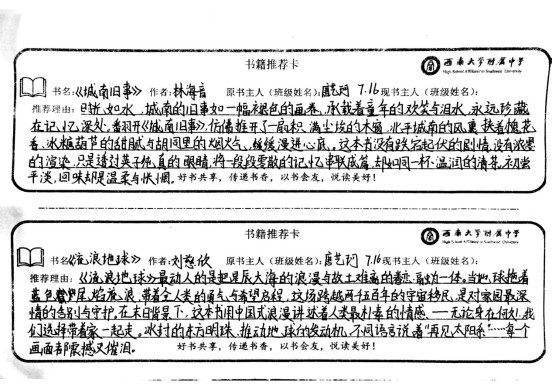 书籍推荐卡
西南大学附属中学
High School Affiliated to Southwest University
书名:《城南旧事》 作者:林海音 原书主人(班级姓名): 7.16 现书主人(班级姓名):
推荐理由:时光如水,城南的旧事如一幅褪色的画卷,承载着童年的欢笑与泪水,永远珍藏
在记忆深处。翻开《城南旧事》,仿佛推开了一扇积满尘埃的木窗,北平城南的风裹挟着槐花
香、冰糖葫芦的甜腻与胡同里的烟火气,缓缓漫进心底。这本书没有跌宕起伏的剧情,没有浓墨
的渲染,只是透过英子纯真的眼睛,将一段段零散的记忆串联成篇,却如同一杯温润的清茶,初尝
平淡,回味却是温柔与怅惘。
好书共享,传递书香,以书会友,悦读美好!
书籍推荐卡
西南大学附属中学
High School Affiliated to Southwest University
书名《流浪地球》 作者:刘慈欣 原书主人(班级姓名): 7.16 现书主人(班级姓名):
推荐理由:《流浪地球》最动人的是把星辰大海的浪漫与故土难离的 融为一体。当地球拖着
蓝色 尾焰流浪,带着全人类的勇气与希望启程,这场跨越两千五百年的宇宙移民,是对家园最深
情的告别与守护。在末日背景下,这本书用中国式浪漫讲述着人类最朴素的情感——无论身在何处,我
们选择带着家一起走。冰封的东方明珠,推动地球的发动机,不同语言说着“再见太阳系”……每个
画面都震撼又催泪。
好书共享,传递书香,以书会友,悦读美好!